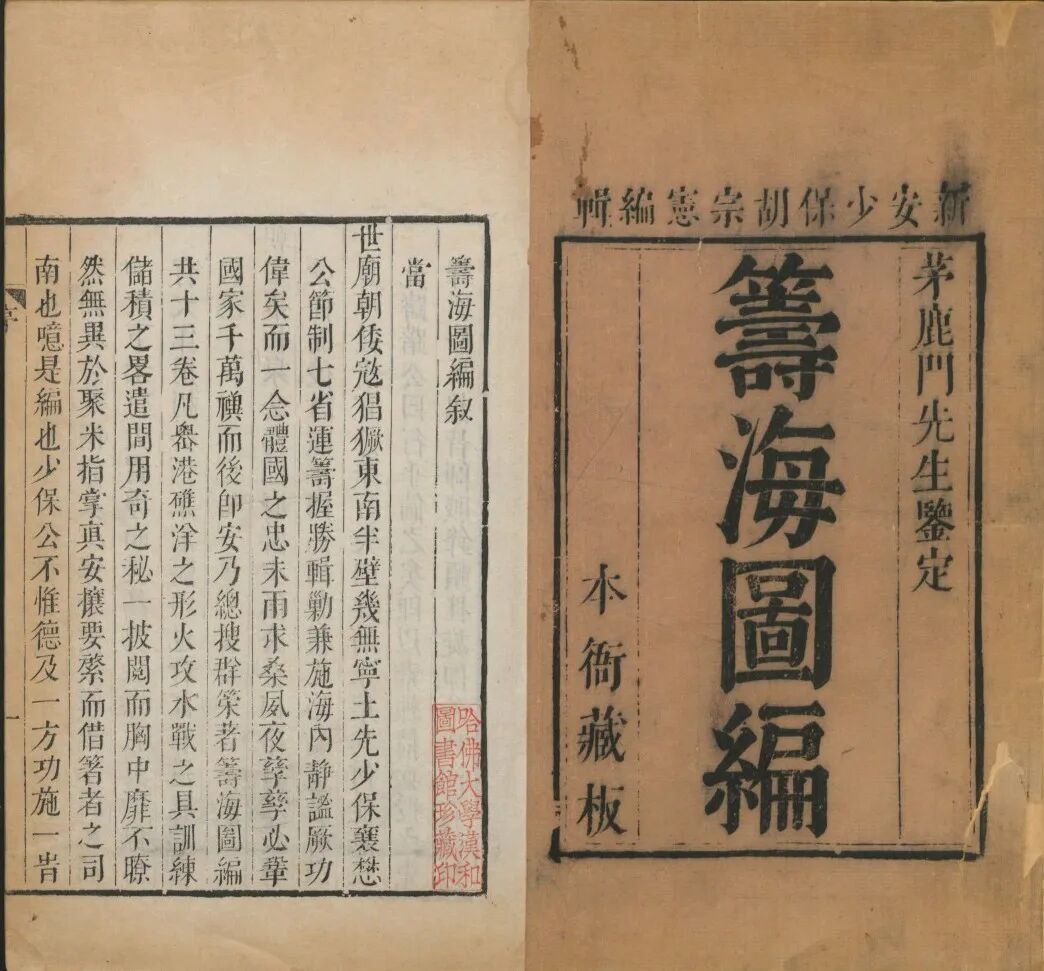 新安少保胡宗憲編輯
茅鹿門先生鑒定
籌海圖編
本衙藏板
籌海圖編叙
當
世廟朝倭寇猖獗東南半壁幾無寧土先少保襄懋
公節制七省運籌握勝輯勦兼施海內靜謐厥功
偉矣而一念體國之忠未雨求桑夙夜孳孳必鞏
國家千萬禩而後即安乃總搜群策著籌海圖編
共十三卷凡嶴港礁洋之形火攻水戰之具訓練
儲積之畧遣間用奇之秘一披閱而胸中靡不瞭
然無異於聚米指掌真安攘要綮而借箸者之司
南也噫是編也少保公不惟德及一方功施一旹
一
哈佛大學漢和
圖書館珍藏印